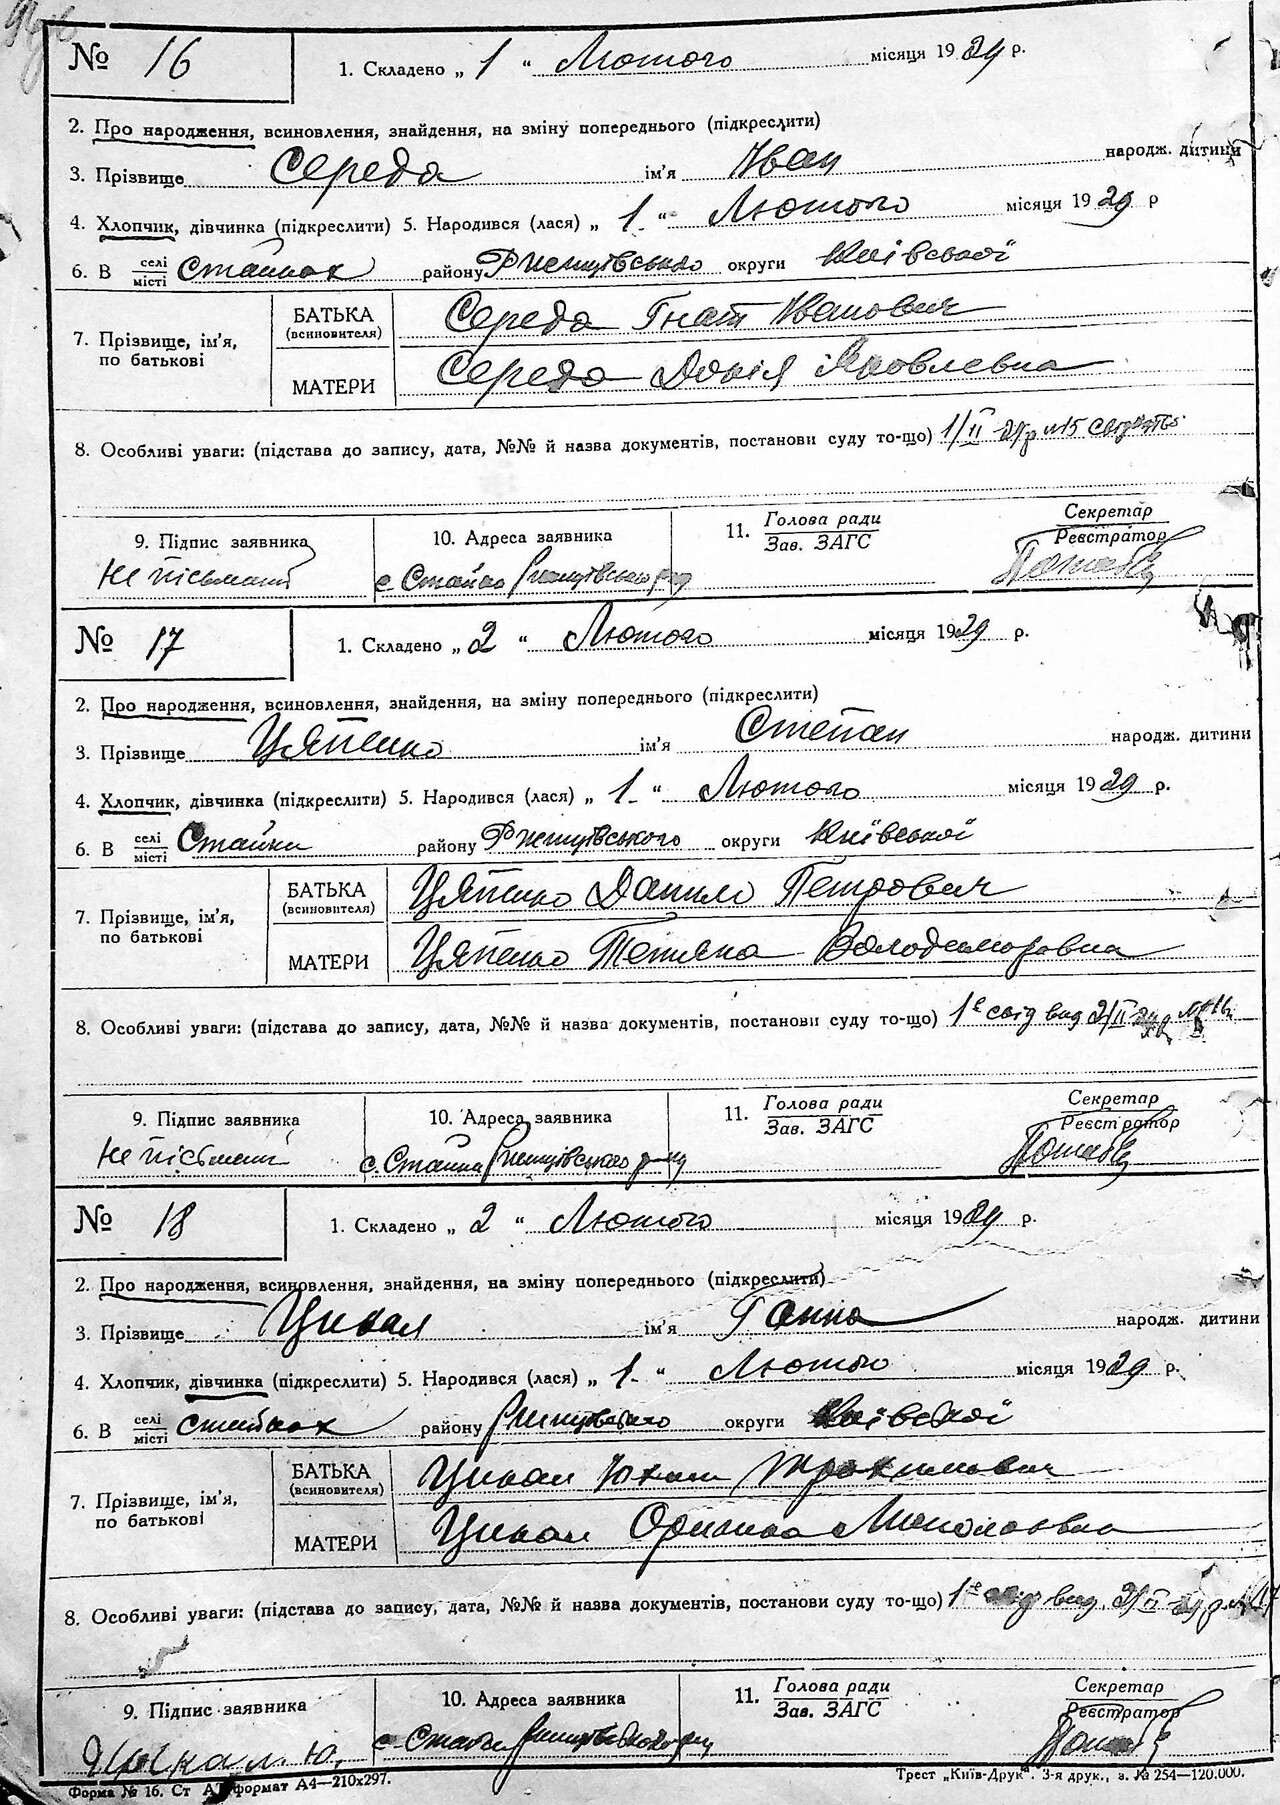 № 16 1. Складено „ 1 “ Лютого місяця 1929 р.
2. Про народження, всиновлення, знайдення, на зміну попереднього (підкреслити)
3. Прізвище Середа ім'я Іван народж. дитини
4. Хлопчик, дівчинка (підкреслити) 5. Народився (лася) „ 1 “ Лютого місяця 1929 р
6. В селі/місті Стайках району Ржищівського округи Київської
7. Прізвище, ім'я, по батькові
БАТЬКА (всиновителя) Середа Гнат Іванович
МАТЕРИ Середа Докія Яковлевна
8. Особливі уваги: (підстава до запису, дата, №№ й назва документів, постанови суду то-що) 1/II 29р №15
9. Підпис заявника 10. Адреса заявника 11. Голова ради/Зав. ЗАГС Секретар/Реєстратор
Не пісьмений с. Стайки Ржищівського
№ 17 1. Складено „ 2 “ Лютого місяця 1929 р.
2. Про народження, всиновлення, знайдення, на зміну попереднього (підкреслити)
3. Прізвище Цяпенко ім'я Степан народж. дитини
4. Хлопчик, дівчинка (підкреслити) 5. Народився (лася) „ 1 “ Лютого місяця 1929 р.
6. В селі/місті Стайки району Ржищівського округи Київської
7. Прізвище, ім'я, по батькові
БАТЬКА (всиновителя) Цяпенко Данило Петрович
МАТЕРИ Цяпенко Тетяна Володимировна
8. Особливі уваги: (підстава до запису, дата, №№ й назва документів, постанови суду то-що) 1е свід вид 2/II 29р
9. Підпис заявника 10. Адреса заявника 11. Голова ради/Зав. ЗАГС Секретар/Реєстратор
Не пісьмений с. Стайки Ржищівського р-ну
№ 18 1. Складено „ 2 “ Лютого місяця 1929 р.
2. Про народження, всиновлення, знайдення, на зміну попереднього (підкреслити)
3. Прізвище Цикал ім'я Ганна народж. дитини
4. Хлопчик, дівчинка (підкреслити) 5. Народився (лася) „ 1 “ Лютого місяця 1929 р.
6. В селі/місті Стайках району Ржищівського округи Київської
7. Прізвище, ім'я, по батькові
БАТЬКА (всиновителя) Цикал Юхим Трохимович
МАТЕРИ Цикал Оришка Миколаевна
8. Особливі уваги: (підстава до запису, дата, №№ й назва документів, постанови суду то-що) 1е свід вид. 2/II 29р №17
9. Підпис заявника 10. Адреса заявника 11. Голова ради/Зав. ЗАГС Секретар/Реєстратор
Цикал Ю. с. Стайки Ржищівського
Форма № 16. Ст А4 формат А4—210x297. Трест „Київ-Друк“. 3-я друк., з. № 254—120.000.